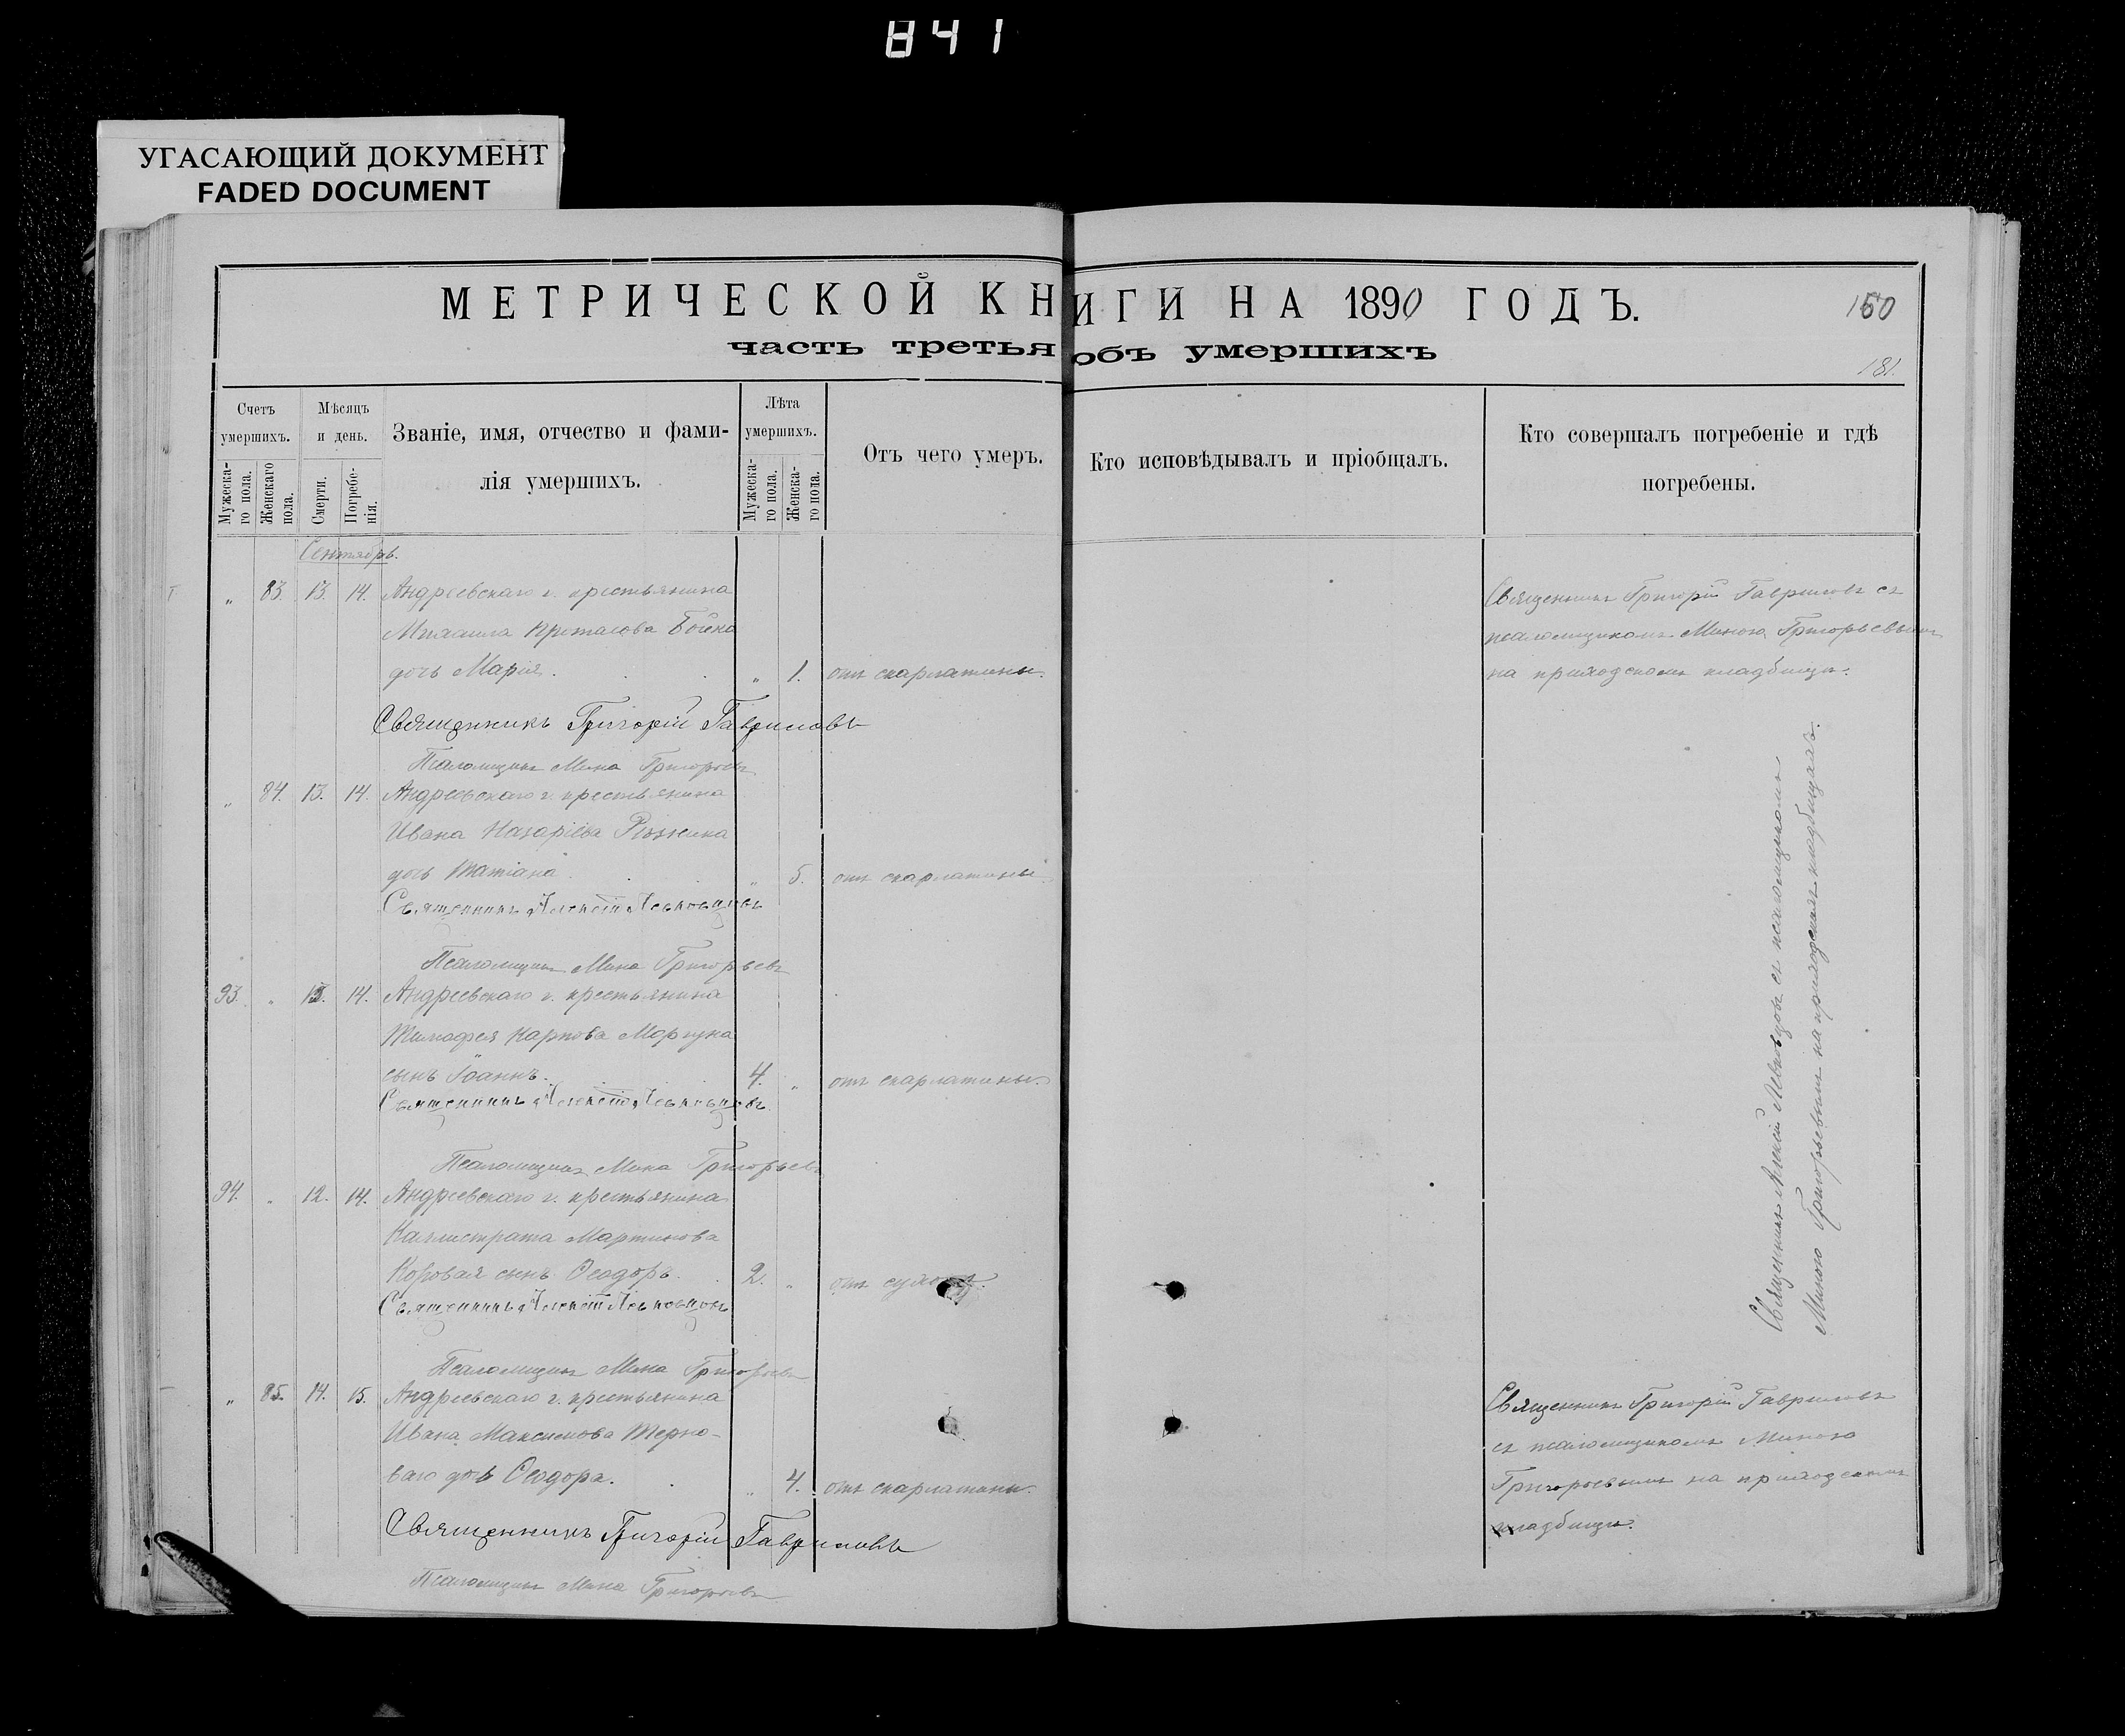 841
УГАСАЮЩИЙ ДОКУМЕНТ
FADED DOCUMENT
МЕТРИЧЕСКОЙ КНИГИ НА 1890 ГОДЪ.
160
часть третья объ умершихъ
181.
Счетъ умершихъ.
Мужеска-го пола.
Женскаго пола.
Мѣсяцъ и день.
Смерти.
Погребе-нія.
Званіе, имя, отчество и фами-
лія умершихъ.
Лѣта умершихъ.
Мужеска-го пола.
Женска-го пола.
Отъ чего умеръ.
Кто исповѣдывалъ и пріобщалъ.
Кто совершалъ погребеніе и гдѣ
погребены.
Сентябрь.
„ 83. 13. 14. Андреевскаго г. крестьянина
Михаила Протасова Бойка
дочь Марія. „ 1. отъ скарлатины.
Священникъ Григорій Гавриловъ съ
псаломщикомъ Миною Григорьевымъ
на приходскомъ кладбищѣ.
Священникъ Григорій Гавриловъ
Псаломщикъ Мина Григорьевъ
„ 84. 13. 14. Андреевскаго г. крестьянина
Ивана Назаріева
дочь Татіана. „ 5. отъ скарлатины.
Священникъ Алексій Левковцовъ
Псаломщикъ Мина Григорьевъ
93. „ 13. 14. Андреевскаго г. крестьянина
Тимофея Карпова Моргуна
сынъ Іоаннъ. 4. „ отъ скарлатины.
Священникъ Алексій Левковцовъ
Псаломщикъ Мина Григорьевъ
94. „ 12. 14. Андреевскаго г. крестьянина
Каллистрата Мартинова
Коровая сынъ Ѳеодоръ. 2. „ отъ
Священникъ Алексій Левковцовъ
Псаломщикъ Мина Григорьевъ
Священникъ Алексій Левковцовъ съ псаломщикомъ
Миною Григорьевымъ на приходскихъ кладбищахъ.
„ 85. 14. 15. Андреевскаго г. крестьянина
Ивана Максимова Терно-
ваго дочь Ѳеодора. „ 4. отъ скарлатины.
Священникъ Григорій Гавриловъ
съ псаломщикомъ Миною
Григорьевымъ на приходскомъ
кладбищѣ.
Священникъ Григорій Гавриловъ
Псаломщикъ Мина Григорьевъ